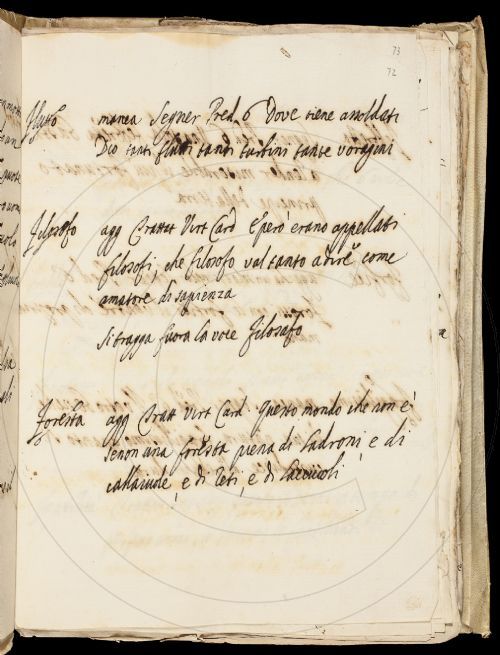 73
72
Flutto manca Segner Pred. 6 Dove tiene assoldati
Dio tanti flutti tanti turbini tante voragini
Filosofo agg Trattat Virt Card E però erano appellati
filosofi, che filosofo val tanto a dire come
amatore di sapienza
Si tragga fuora la voce Filosafo
Foresta agg Tratt Virt Card. questo mondo che non è
se non una foresta piena di Ladroni, e di
callaiuole, e di reti, e di lacciuoli